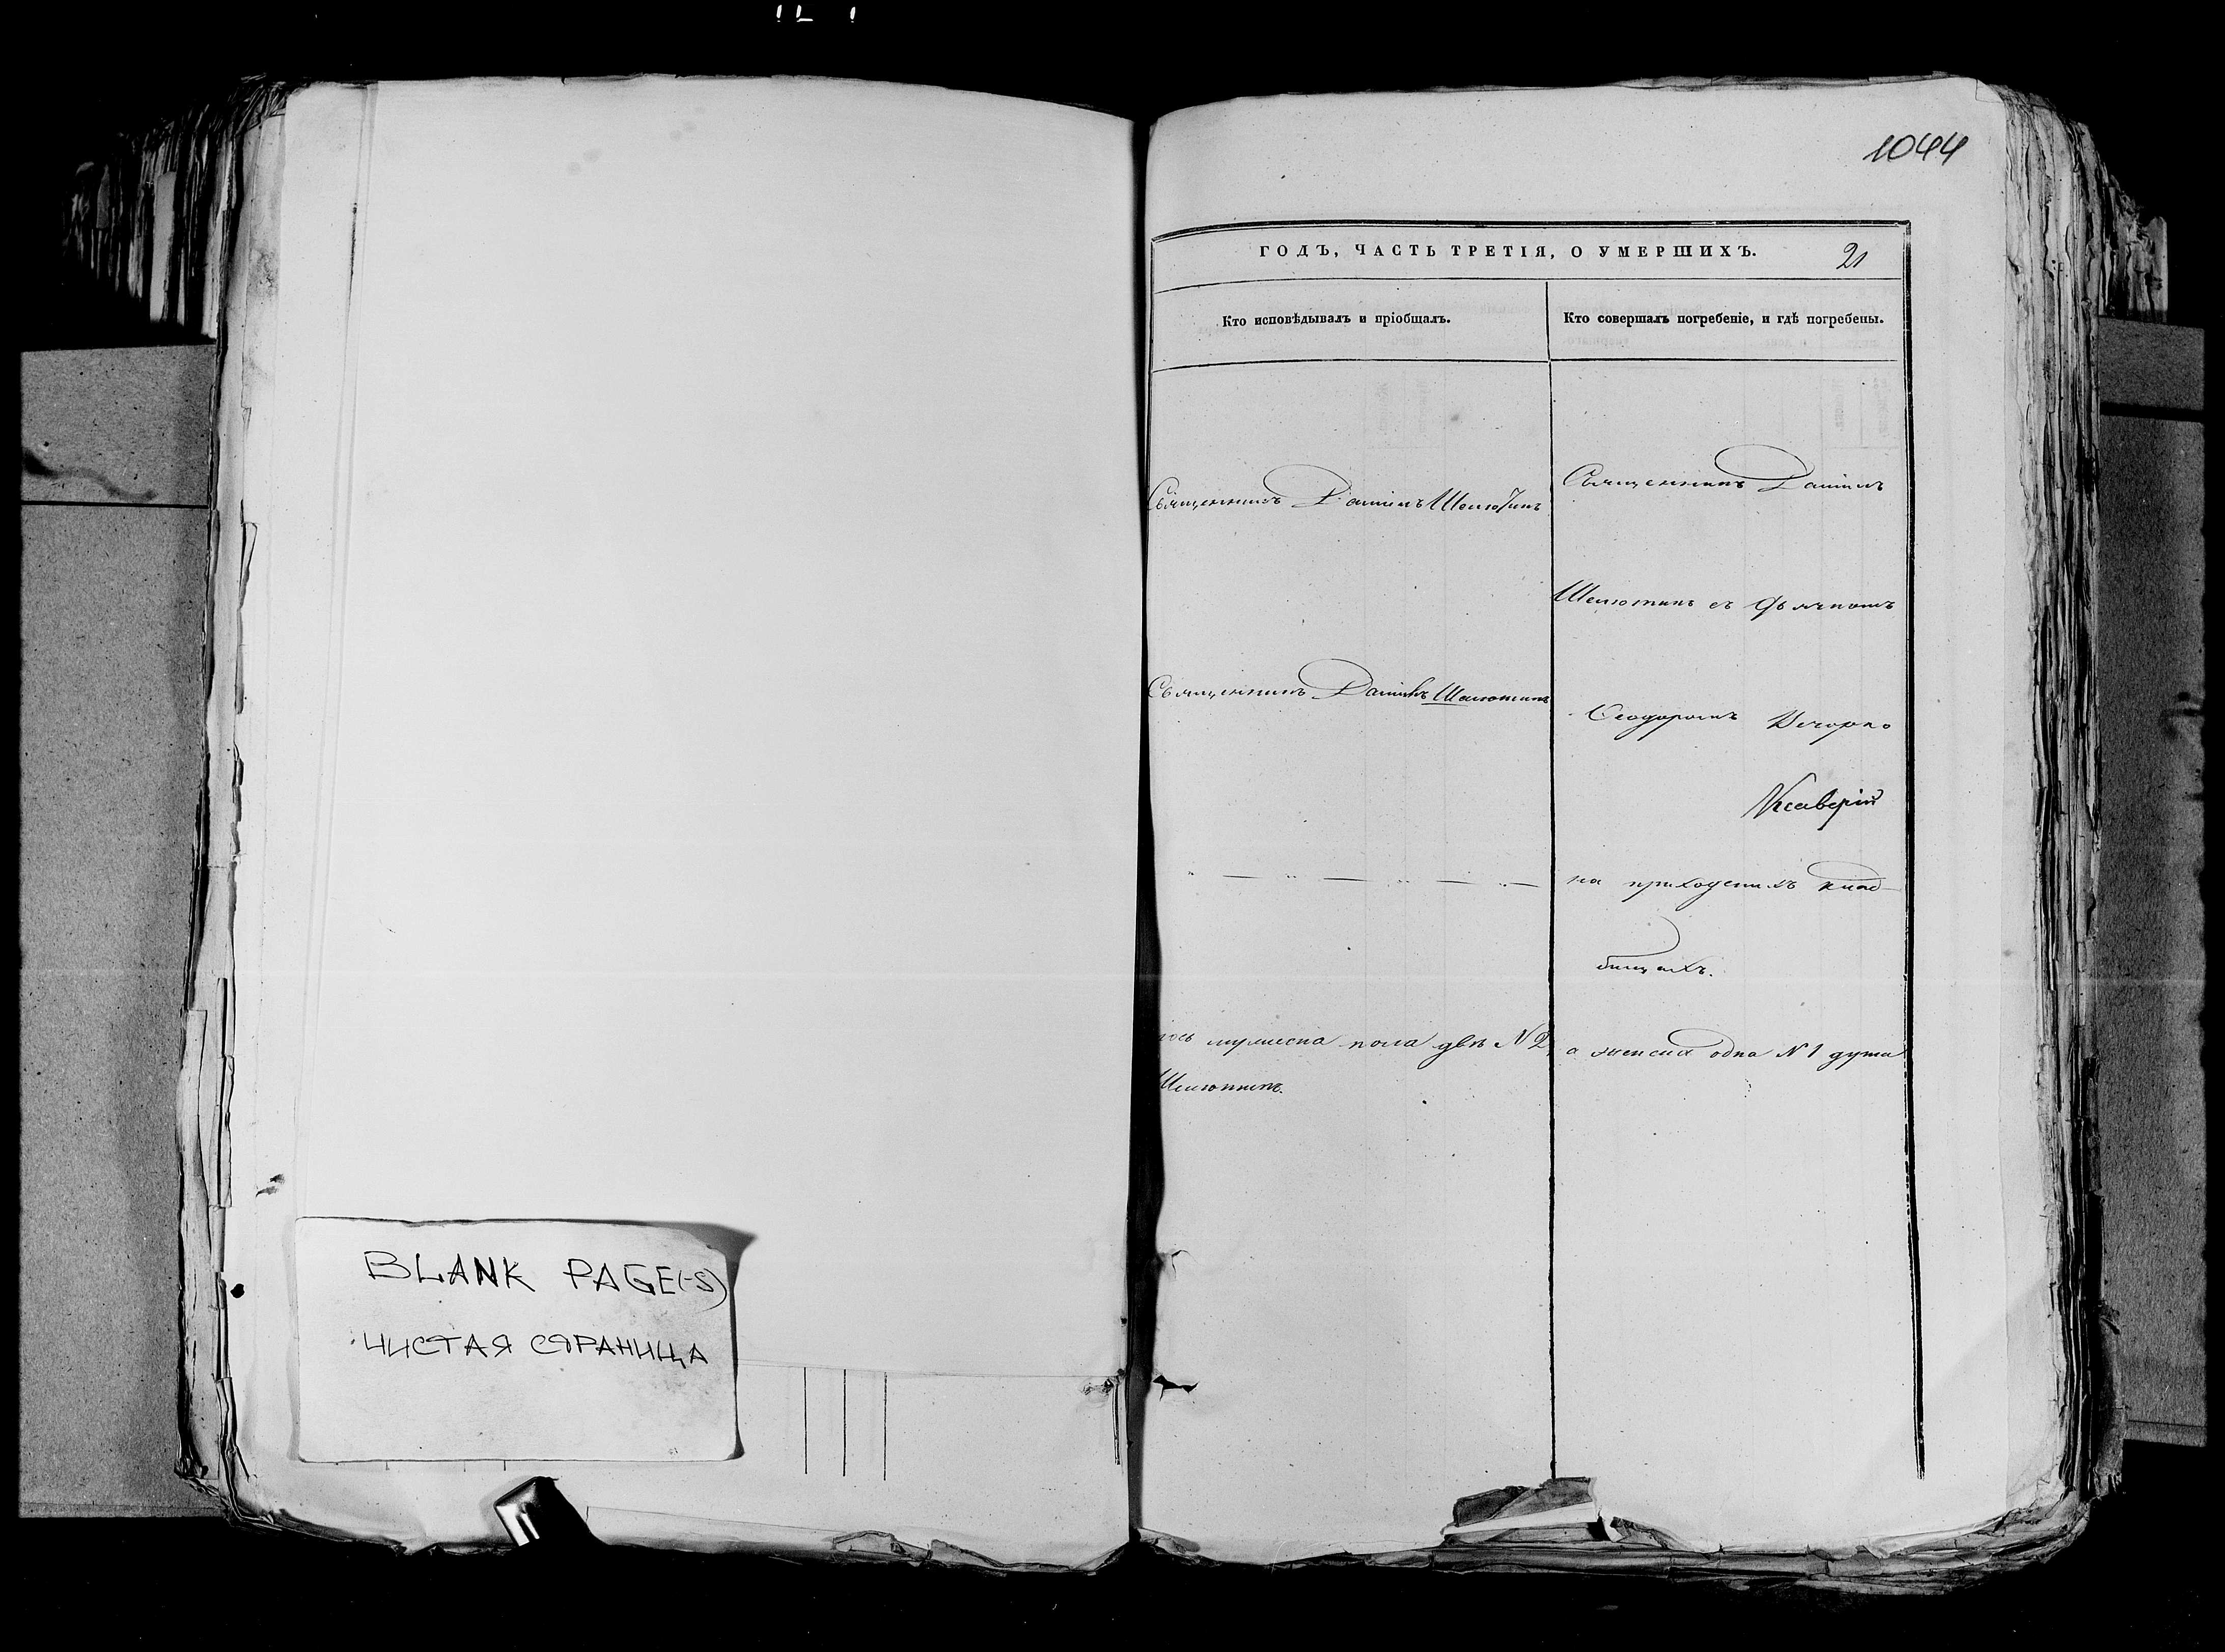 1044
ГОДЪ, ЧАСТЬ ТРЕТІЯ, О УМЕРШИХЪ. 21
Кто исповѣдывалъ и пріобщалъ.
Кто совершалъ погребеніе, и гдѣ погребены.
Священникъ Даніилъ Шелютинъ
Священникъ Даніилъ Шелютинъ
Священникъ Даніилъ
Шелютинъ съ Дьячкомъ
Ѳеодоромъ
Ксаверій
на приходскихъ клад-
бищахъ.
мужеска пола двѣ № 2, а женска одна № 1 душа
Шелютинъ.
BLANK PAGE(-S)
ЧИСТАЯ СТРАНИЦА